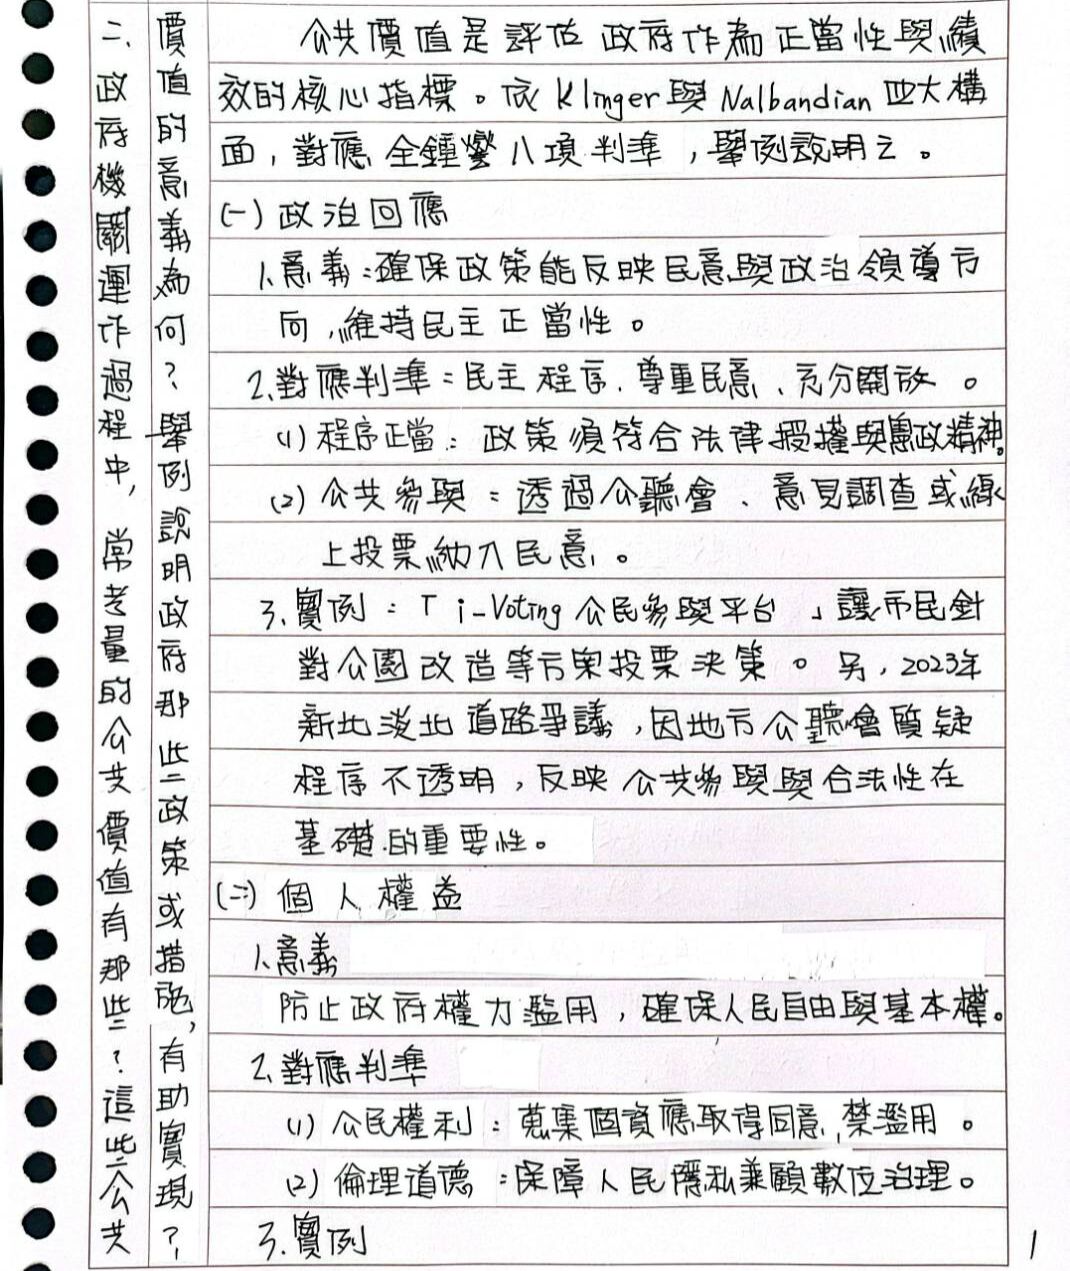 二、政府機關運作過程中,常考量的公共價值有那些?這些公共
價值的意義為何?舉例說明政府那些政策或措施,有助實現?
公共價值是評估政府作為正當性與績
效的核心指標。依Klinger與Nalbandian四大構
面,對應全鍾燮八項判準,舉例說明之。
(一)政治回應
1.意義:確保政策能反映民意與政治領導方
向,維持民主正當性。
2.對應判準:民主程序、尊重民意、充分開放。
(1)程序正當:政策須符合法律授權與憲政精神。
(2)公共參與:透過公聽會、意見調查或線
上投票納入民意。
3.實例:「i-Voting公民參與平台」讓市民針
對公園改造等方案投票決策。另,2023年
新北淡北道路爭議,因地方公聽會質疑
程序不透明,反映公共參與與合法性在
基礎的重要性。
(二)個人權益
1.意義
防止政府權力濫用,確保人民自由與基本權。
2.對應判準
(1)公民權利:蒐集個資應取得同意,禁濫用。
(2)倫理道德:保障人民隱私兼顧數位治理。
3.實例
1